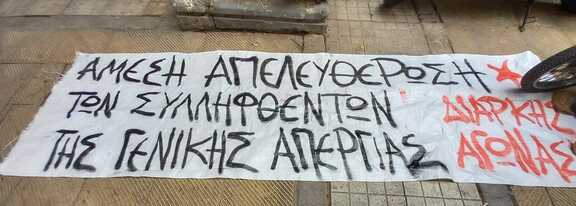 ΑΜΕΣΗ ΑΠΕΛΕΥΘΕΡΩΣΗ
ΤΩΝ ΣΥΛΛΗΦΘΕΝΤΩΝ ΔΙΑΡΚΗΣ
ΤΗΣ ΓΕΝΙΚΗΣ ΑΠΕΡΓΙΑΣ ΑΓΩΝΑΣ